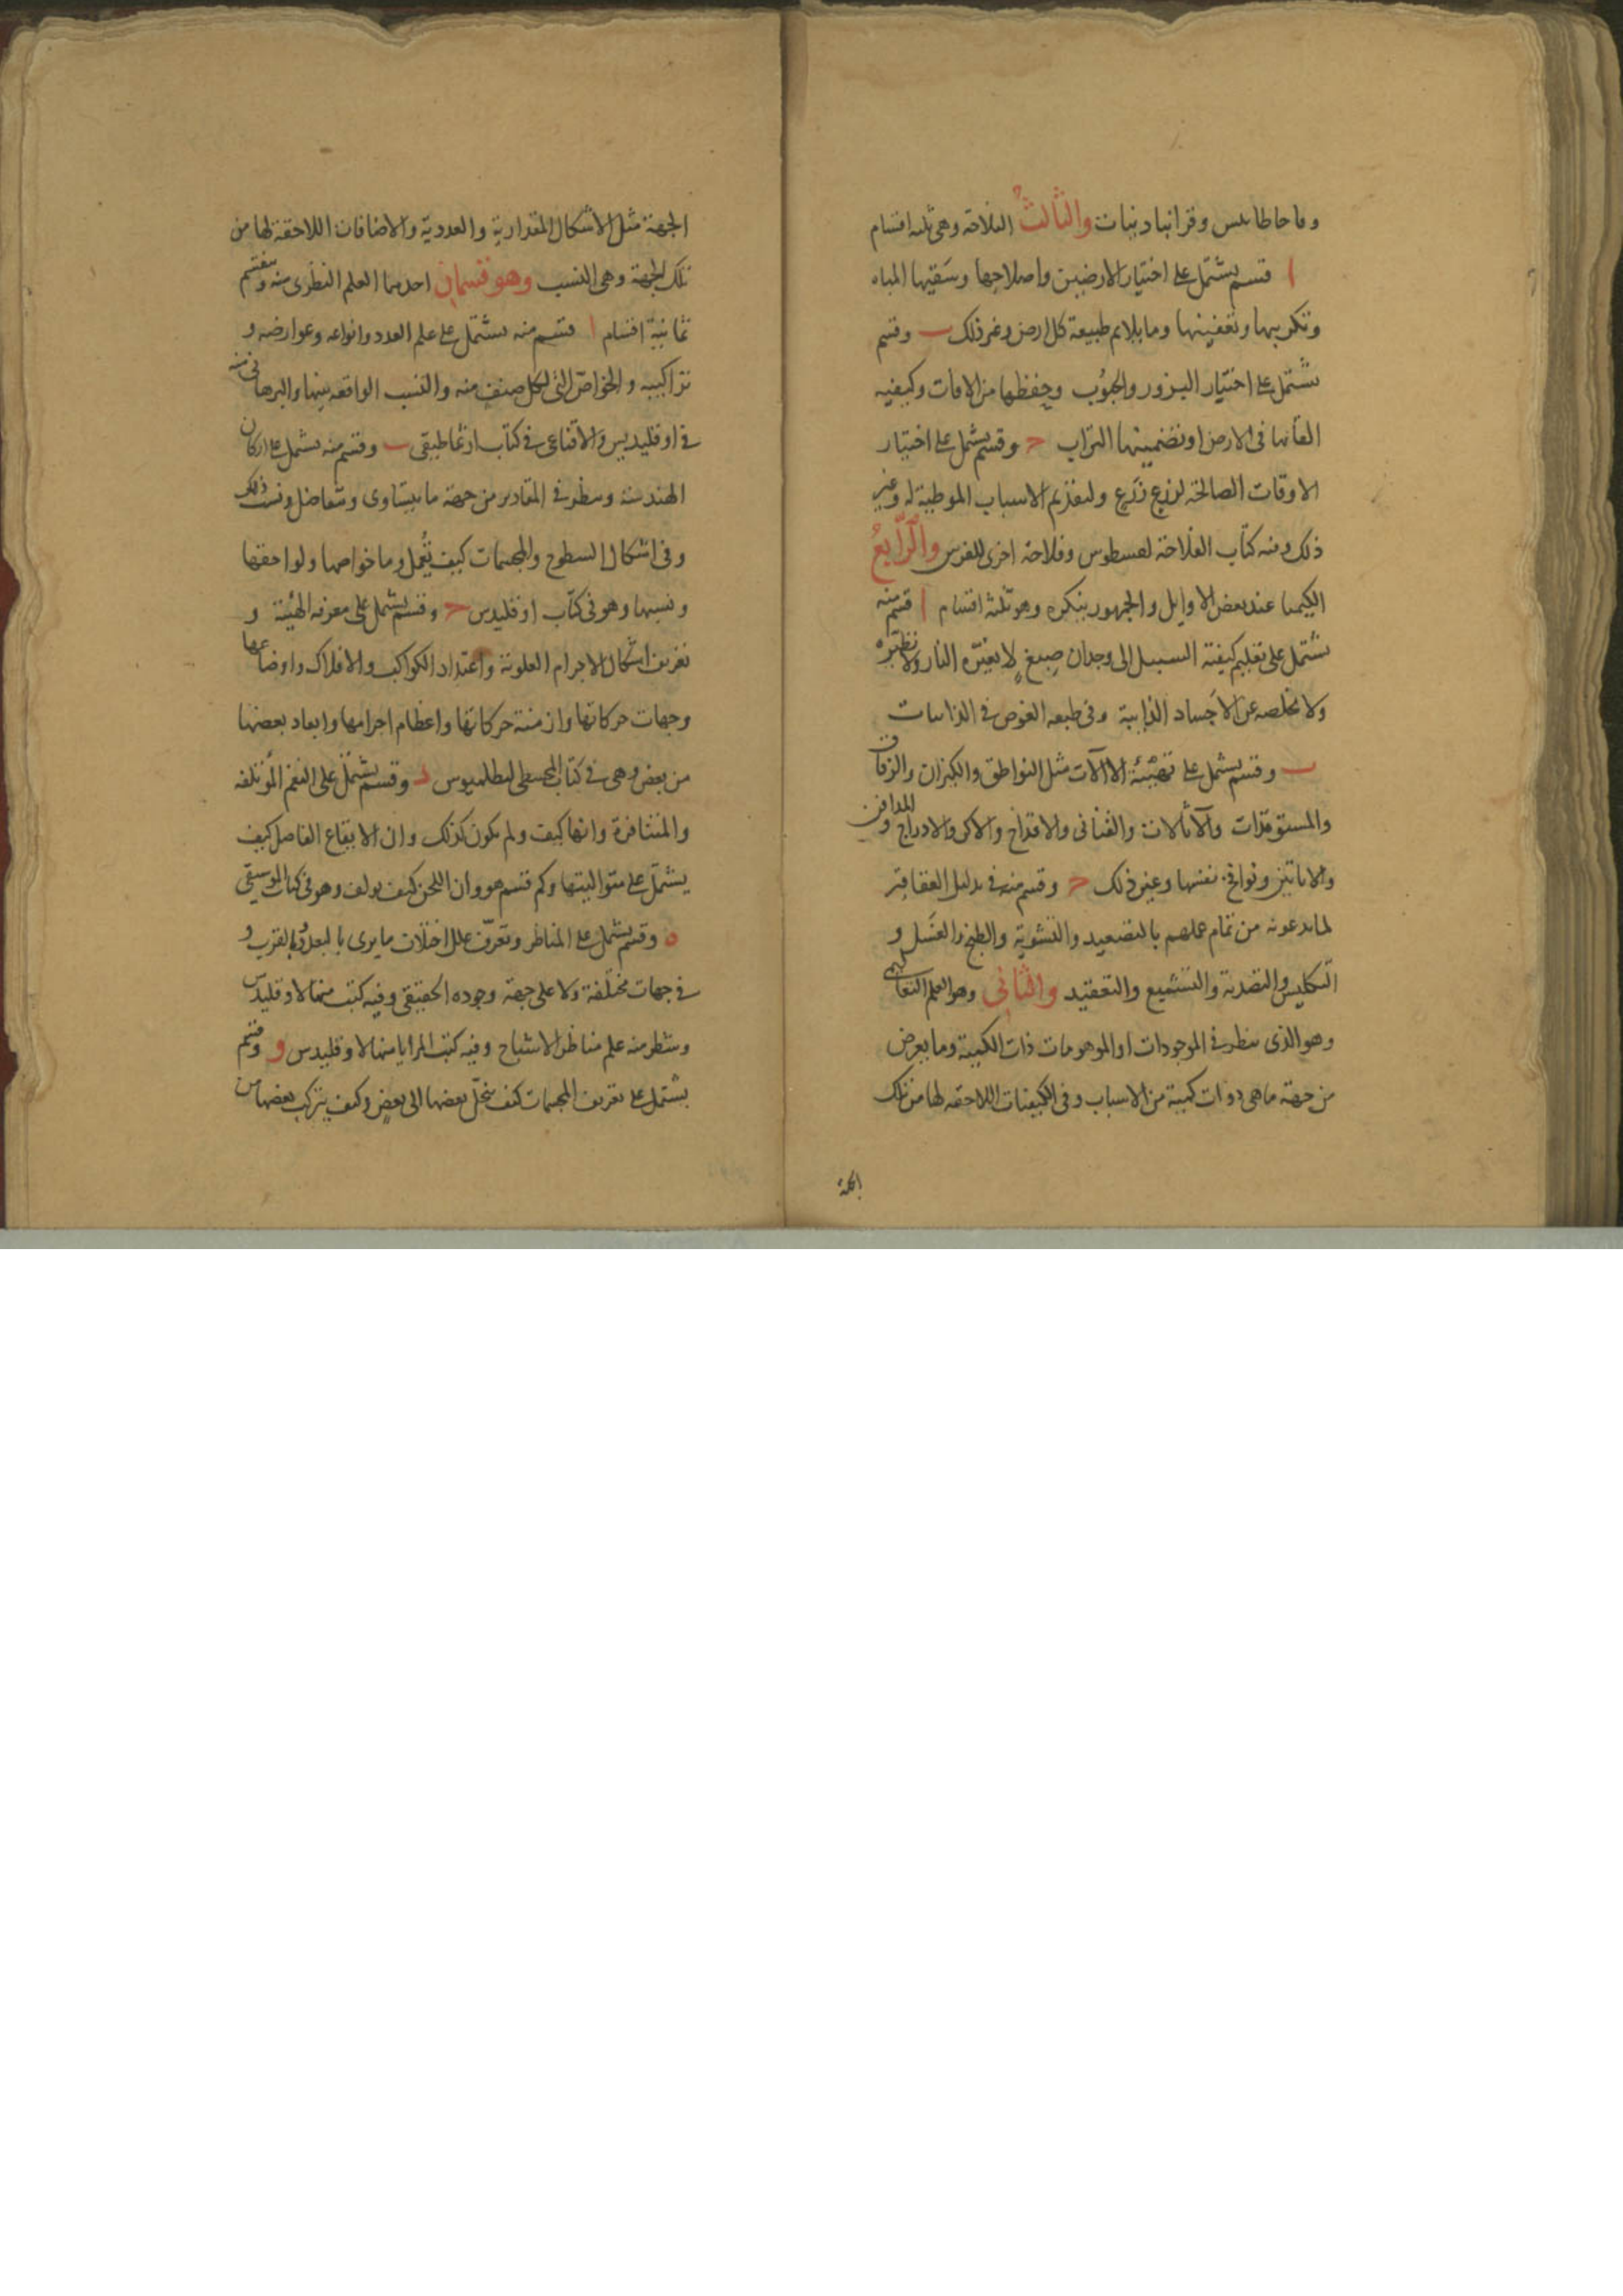 وقاحاطابلس وقرانبادنبات والثالث الفلاحة وهى ثلثة اقسام
ا قسم يشتمل على اختيار الارضين واصلاحها وسقيها المياه
وتكريبها وتعفينها وما يلايم طبيعة كل ارض وغير ذلك ب وقسم
يشتمل على اختيار البزور والحبوب وحفظها من الافات وكيفيه
القائها فى الارض او تضمينها التراب ح وقسم يشتمل على اختيار
الاوقات الصالحة لزرع زرع ولتقديم الاسباب الموطية له وغير
ذلك ومنه كتاب الفلاحة لقسطوس وفلاحة اخرى للفرس والرابع
الكيميا عند بعض الاوايل والجمهور ينكره وهو ثلثة اقسام ا قسم منه
يشتمل على تعليم كيفية السبيل الى وجدان صبغ لا يغيره النار ولا تطيره
ولا تخلصه عن الاجساد الذايبة وفى طبعه الغوص فى الذايبات
ب وقسم يشتمل على تهيئة الاالآت مثل البواطق والكيزان والزقاق
والمستوقدات والآثالات والقنانى والاقداح والاكر والادراج والمدافن
والاتاتين ونوافخ نفسها وغير ذلك ح وقسم منه فى تدليل العقاقير
لما يدعونه من تمام عملهم بالتصعيد والتشوية والطبخ والغسل و
التكليس والتصدية والتشميع والتعقيد والثانى وهو العلم التعاليمى
وهو الذى ينظر فى الموجودات او الموهومات ذات الكمية وما يعرض
من جهة ما هى ذوات كمية من الاسباب وفى الكيفيات اللاحقه لها من تلك
الجهة
الجهة مثل الاشكال المقدارية والعددية والاضافات اللاحقة لها من
تلك الجهة وهى النسب وهو قسمان احدهما العلم النظرى منه وينقسم
ثمانية اقسام ا قسم منه يشتمل على علم العدد وانواعه وعوارضه و
تراكيبه والخواص التى لكل صنف منه والنسب الواقعه بينها والبرهانى منه
فى اوقليدس والاقناعى فى كتاب ارثماطيقى ب وقسم منه يشتمل على اركان
الهندسة وينظر فى المقادير من جهة ما يتساوى ويتفاضل ونسب ذلك
وفى اشكال السطوح والمجسمات كيف تُعمل وما خواصها ولواحقها
ونسبها وهو فى كتاب اوقليدس ح وقسم يشتمل على معرفه الهيئة و
تعريف اشكال الاجرام العلوية واعتداد الكواكب والافلاك واوضاعها
وجهات حركاتها وازمنة حركاتها واعظام اجرامها وابعاد بعضها
من بعض وهى فى كتاب المجسطى لبطلميوس د وقسم يشتمل على النغم المؤتلفه
والمتنافرة وانها كيف ولم يكون كذلك وان الايقاع الفاصل كيف
يشتمل على متواليتها وكم قسم هو وان اللحن كيف يولف وهو فى كتاب الموسيقى
ه وقسم يشتمل على المناظر وتعرف علل اختلاف ما يرى بالبعد وبالقرب و
فى جهات مختلفة ولا على جهة وجوده الحقيقى وفيه كتب منها لاوقليدس
وشطر منه علم مناظر الاشباح وفيه كتب المرايا منها لاوقليدس و وقسم
يشتمل على تعريف المجسمات كيف ينحل بعضها الى بعض وكيف يتركب بعضها من